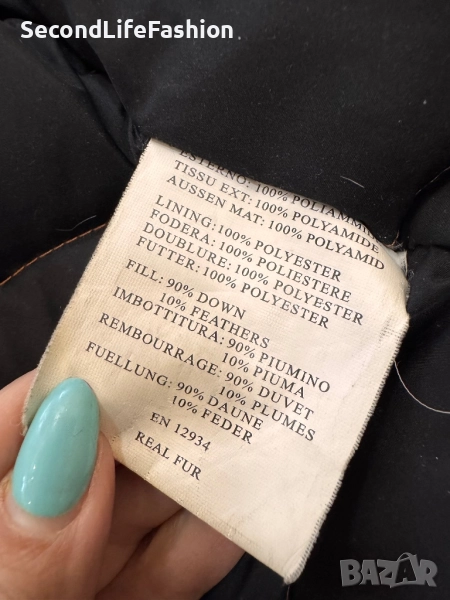 SecondLifeFashion
ESTERNO: 100% POLIAMMI
TISSU EXT: 100% POLYAMIDE
AUSSEN MAT: 100% POLYAMID
LINING: 100% POLYESTER
FODERA: 100% POLIESTERE
DOUBLURE: 100% POLYESTER
FUTTER: 100% POLYESTER
FILL: 90% DOWN
10% FEATHERS
IMBOTTITURA: 90% PIUMINO
10% PIUMA
REMBOURRAGE: 90% DUVET
10% PLUMES
FUELLUNG: 90% DAUNE
10% FEDER
EN 12934
REAL FUR
BAZAR